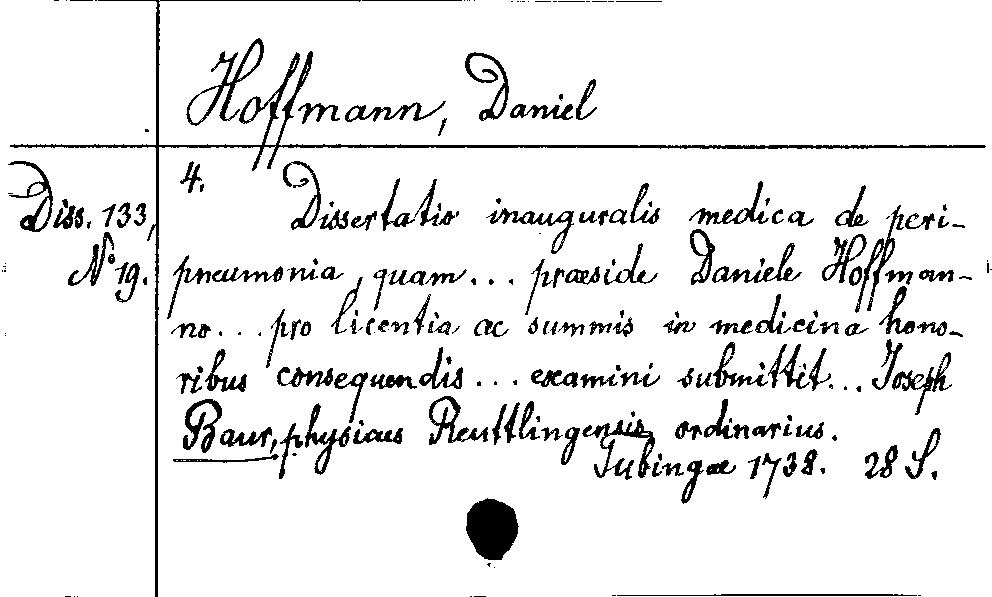 Hoffmann, Daniel
Diss. 133,
No 19.
4.
Dissertatio inauguralis medica de peri-
pneumonia, quam... praeside Daniele Hoffman-
no... pro licentia ac summis in medicina hono-
ribus consequendis... examini submittit... Joseph
Baur, physicus Reuttlingensis ordinarius.
Tubingae 1738. 28 S.